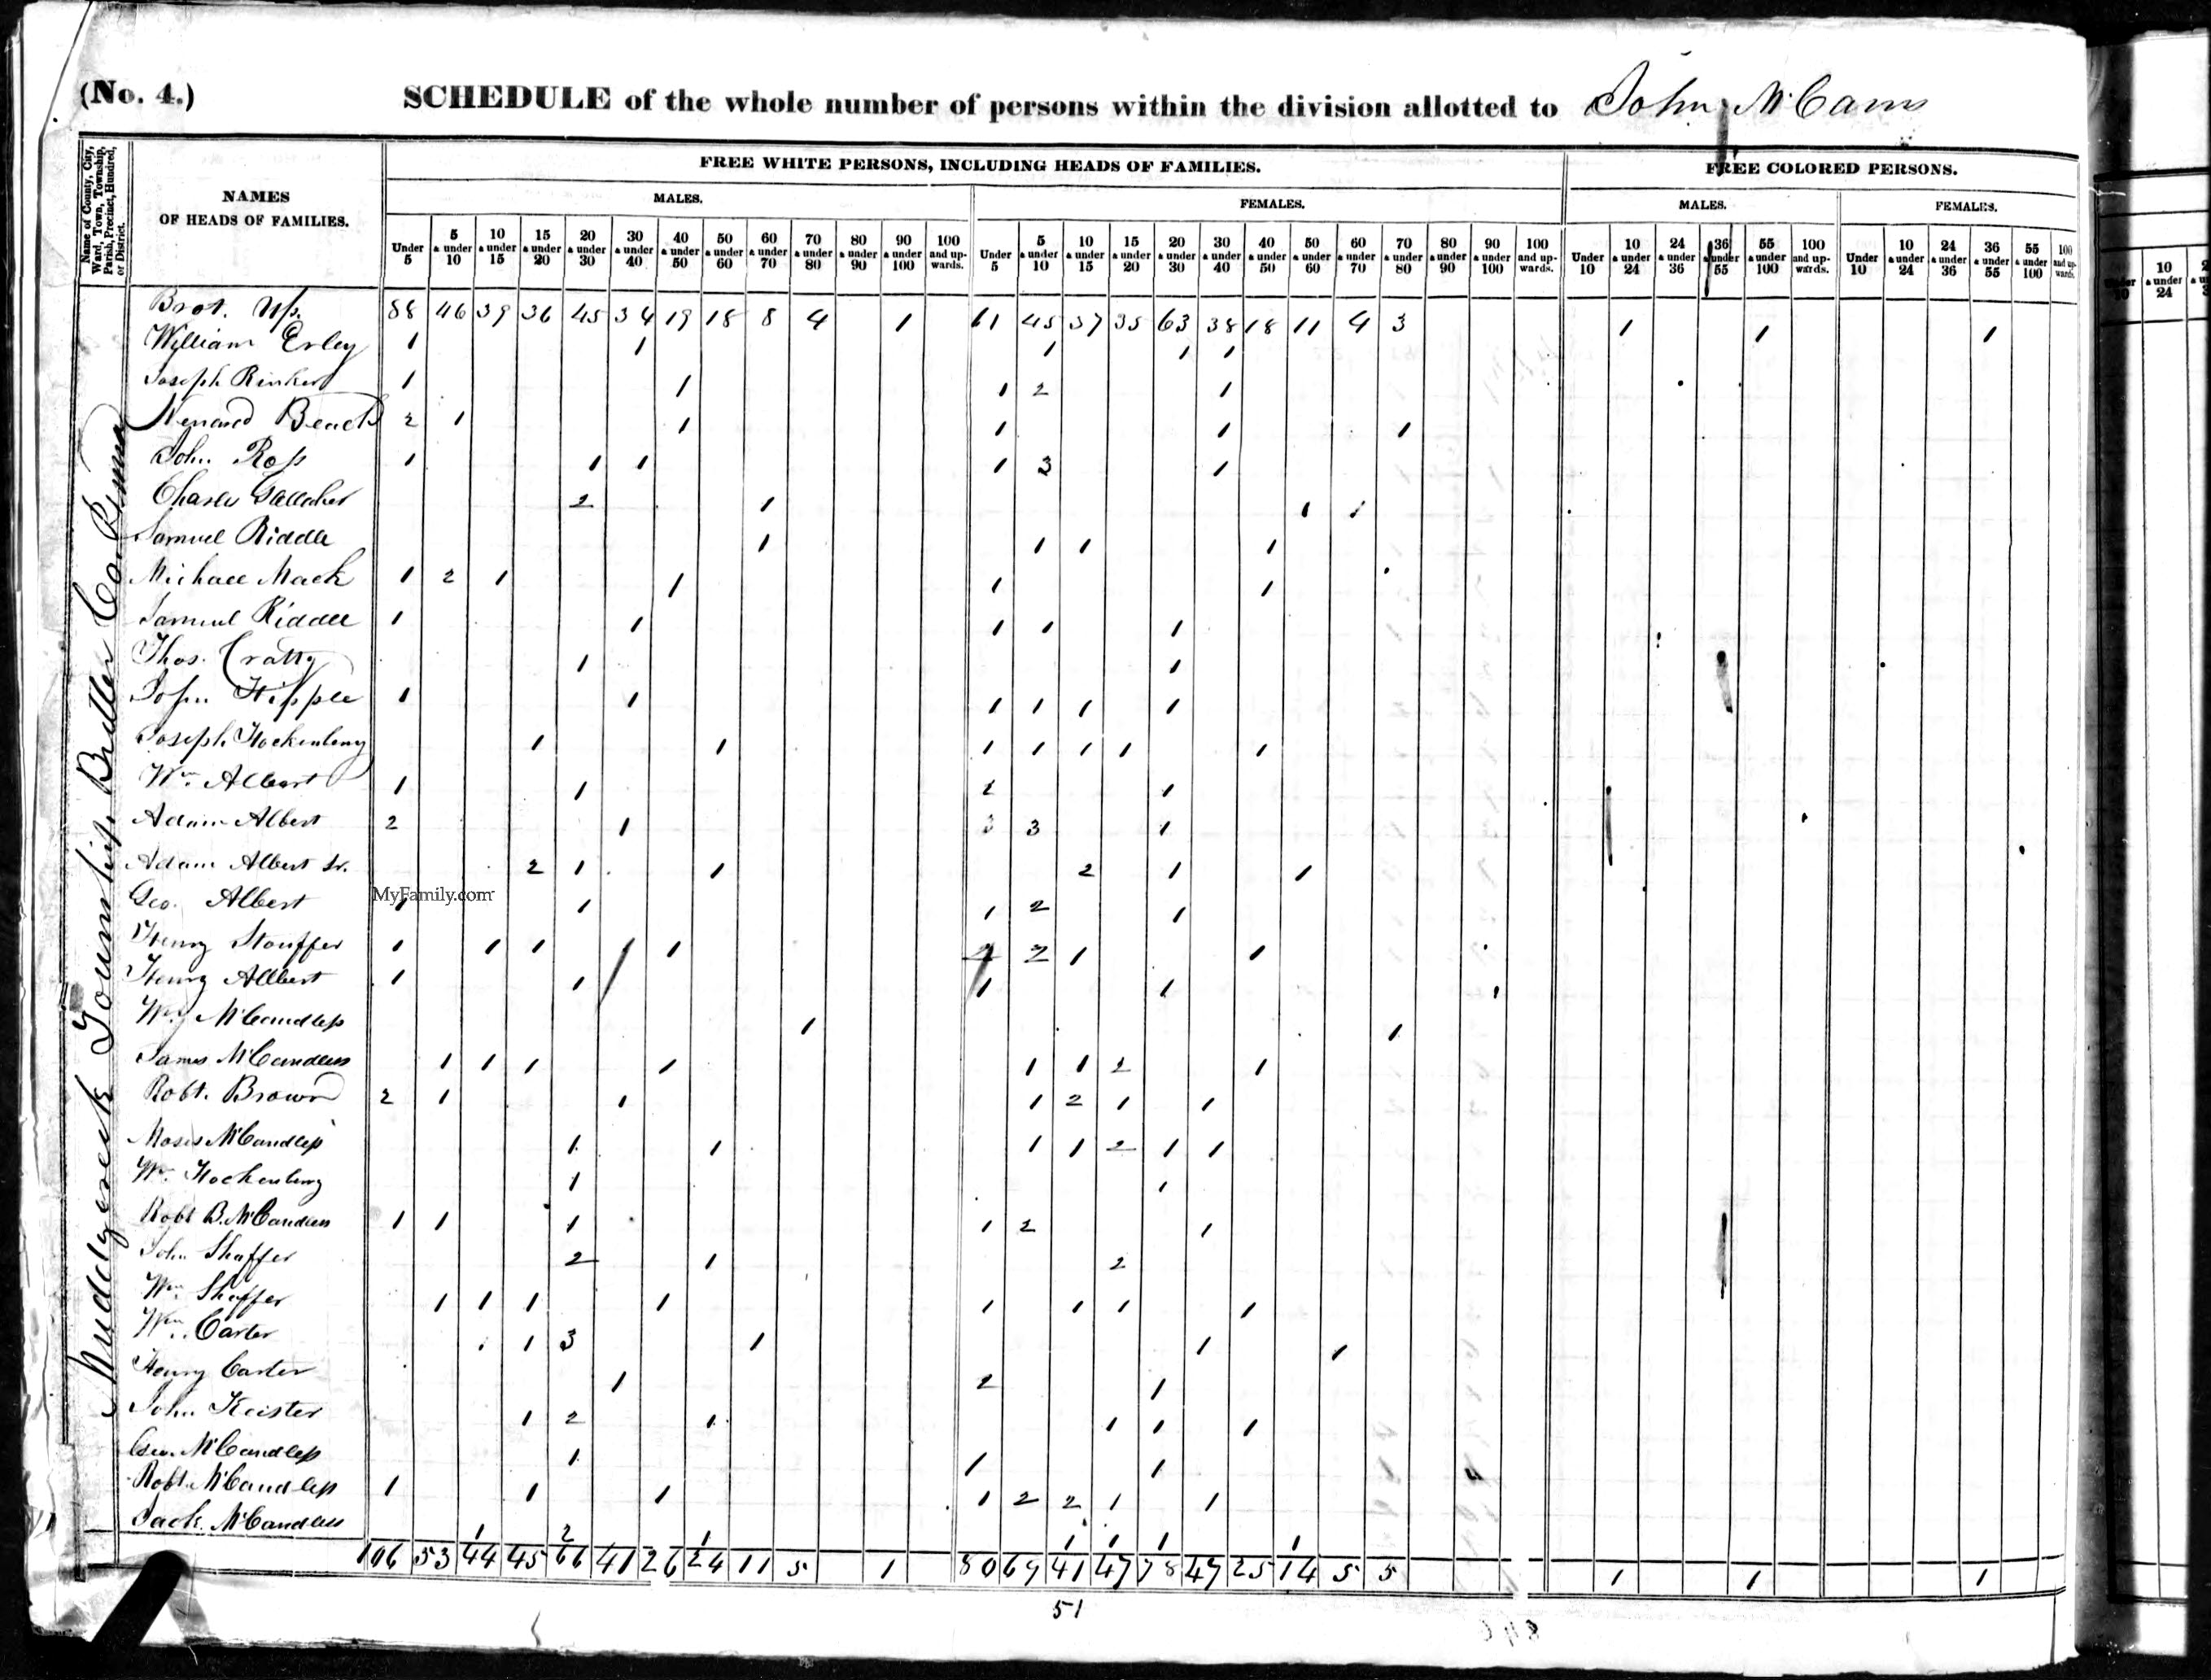 (No. 4.)
SCHEDULE of the whole number of persons within the division allotted to John McCams
Name of County, City, Ward, Town, Township, Parish, Precinct, Hundred, or District.
NAMES
OF HEADS OF FAMILIES.
FREE WHITE PERSONS, INCLUDING HEADS OF FAMILIES.
FREE COLORED PERSONS.
MALES. FEMALES. MALES. FEMALES.
Under 5 5 & under 10 10 & under 15 15 & under 20 20 & under 30 30 & under 40 40 & under 50 50 & under 60 60 & under 70 70 & under 80 80 & under 90 90 & under 100 100 and upwards. Under 5 5 & under 10 10 & under 15 15 & under 20 20 & under 30 30 & under 40 40 & under 50 50 & under 60 60 & under 70 70 & under 80 80 & under 90 90 & under 100 100 and upwards. Under 10 10 & under 24 24 & under 36 36 & under 55 55 & under 100 100 and upwards. Under 10 10 & under 24 24 & under 36 36 & under 55 55 & under 100 100 and upwards.
Muddycreek Township Butler Co. Penna
Brot. Up. 88 46 39 36 45 34 19 18 8 4 1 61 45 37 35 63 38 18 11 4 3 1 1 1
William Erley 1 1 1 1 1
Joseph Rinker 1 1 1 2 1
Kenard Beach 2 1 1 1 1 1
John Ross 1 1 1 1 3 1
Charles Gallaher 2 1 1 1
Samuel Riddle 1 1 1 1
Michael Mack 1 2 1 1 1 1
Samuel Riddle 1 1 1 1 1
Thos. Cratty 1 1
John Hipple 1 1 1 1 1 1
Joseph Hockenberry 1 1 1 1 1 1 1
Wm. Albert 1 1 2 1
Adam Albert 2 1 3 3 1
Adam Albert Sr. 2 1 1 2 1 1
Geo. Albert 1 1 1 2 1
MyFamily.com
Henry Stouffer 1 1 1 1 2 1 1
Henry Albert 1 1 1 1
Wm McCandless 1 1
James McCandless 1 1 1 1 1 1 2 1
Robt. Brown 2 1 1 1 2 1 1
Moses McCandless 1 1 1 1 2 1 1
Wm. Hockenberry 1 1
Robt B. McCandless 1 1 1 1 2 1
John Shaffer 2 1 2
Wm. Shaffer 1 1 1 1 1 1 1 1
Wm. Carter 1 1 3 1 1 1
Henry Carter 1 2 1
John Keister 1 2 1 1 1 1
Geo. McCandless 1 1 1
Robt. McCandless 1 1 1 1 2 2 1 1
Jack. McCandless 1 2 1 1 1 1 1
106 53 44 45 66 41 26 24 11 5 1 80 69 41 47 78 47 25 14 5 5 1 1 1
51